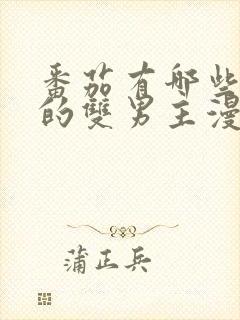 番茄有哪些
的雙男主漫
蒲正兵